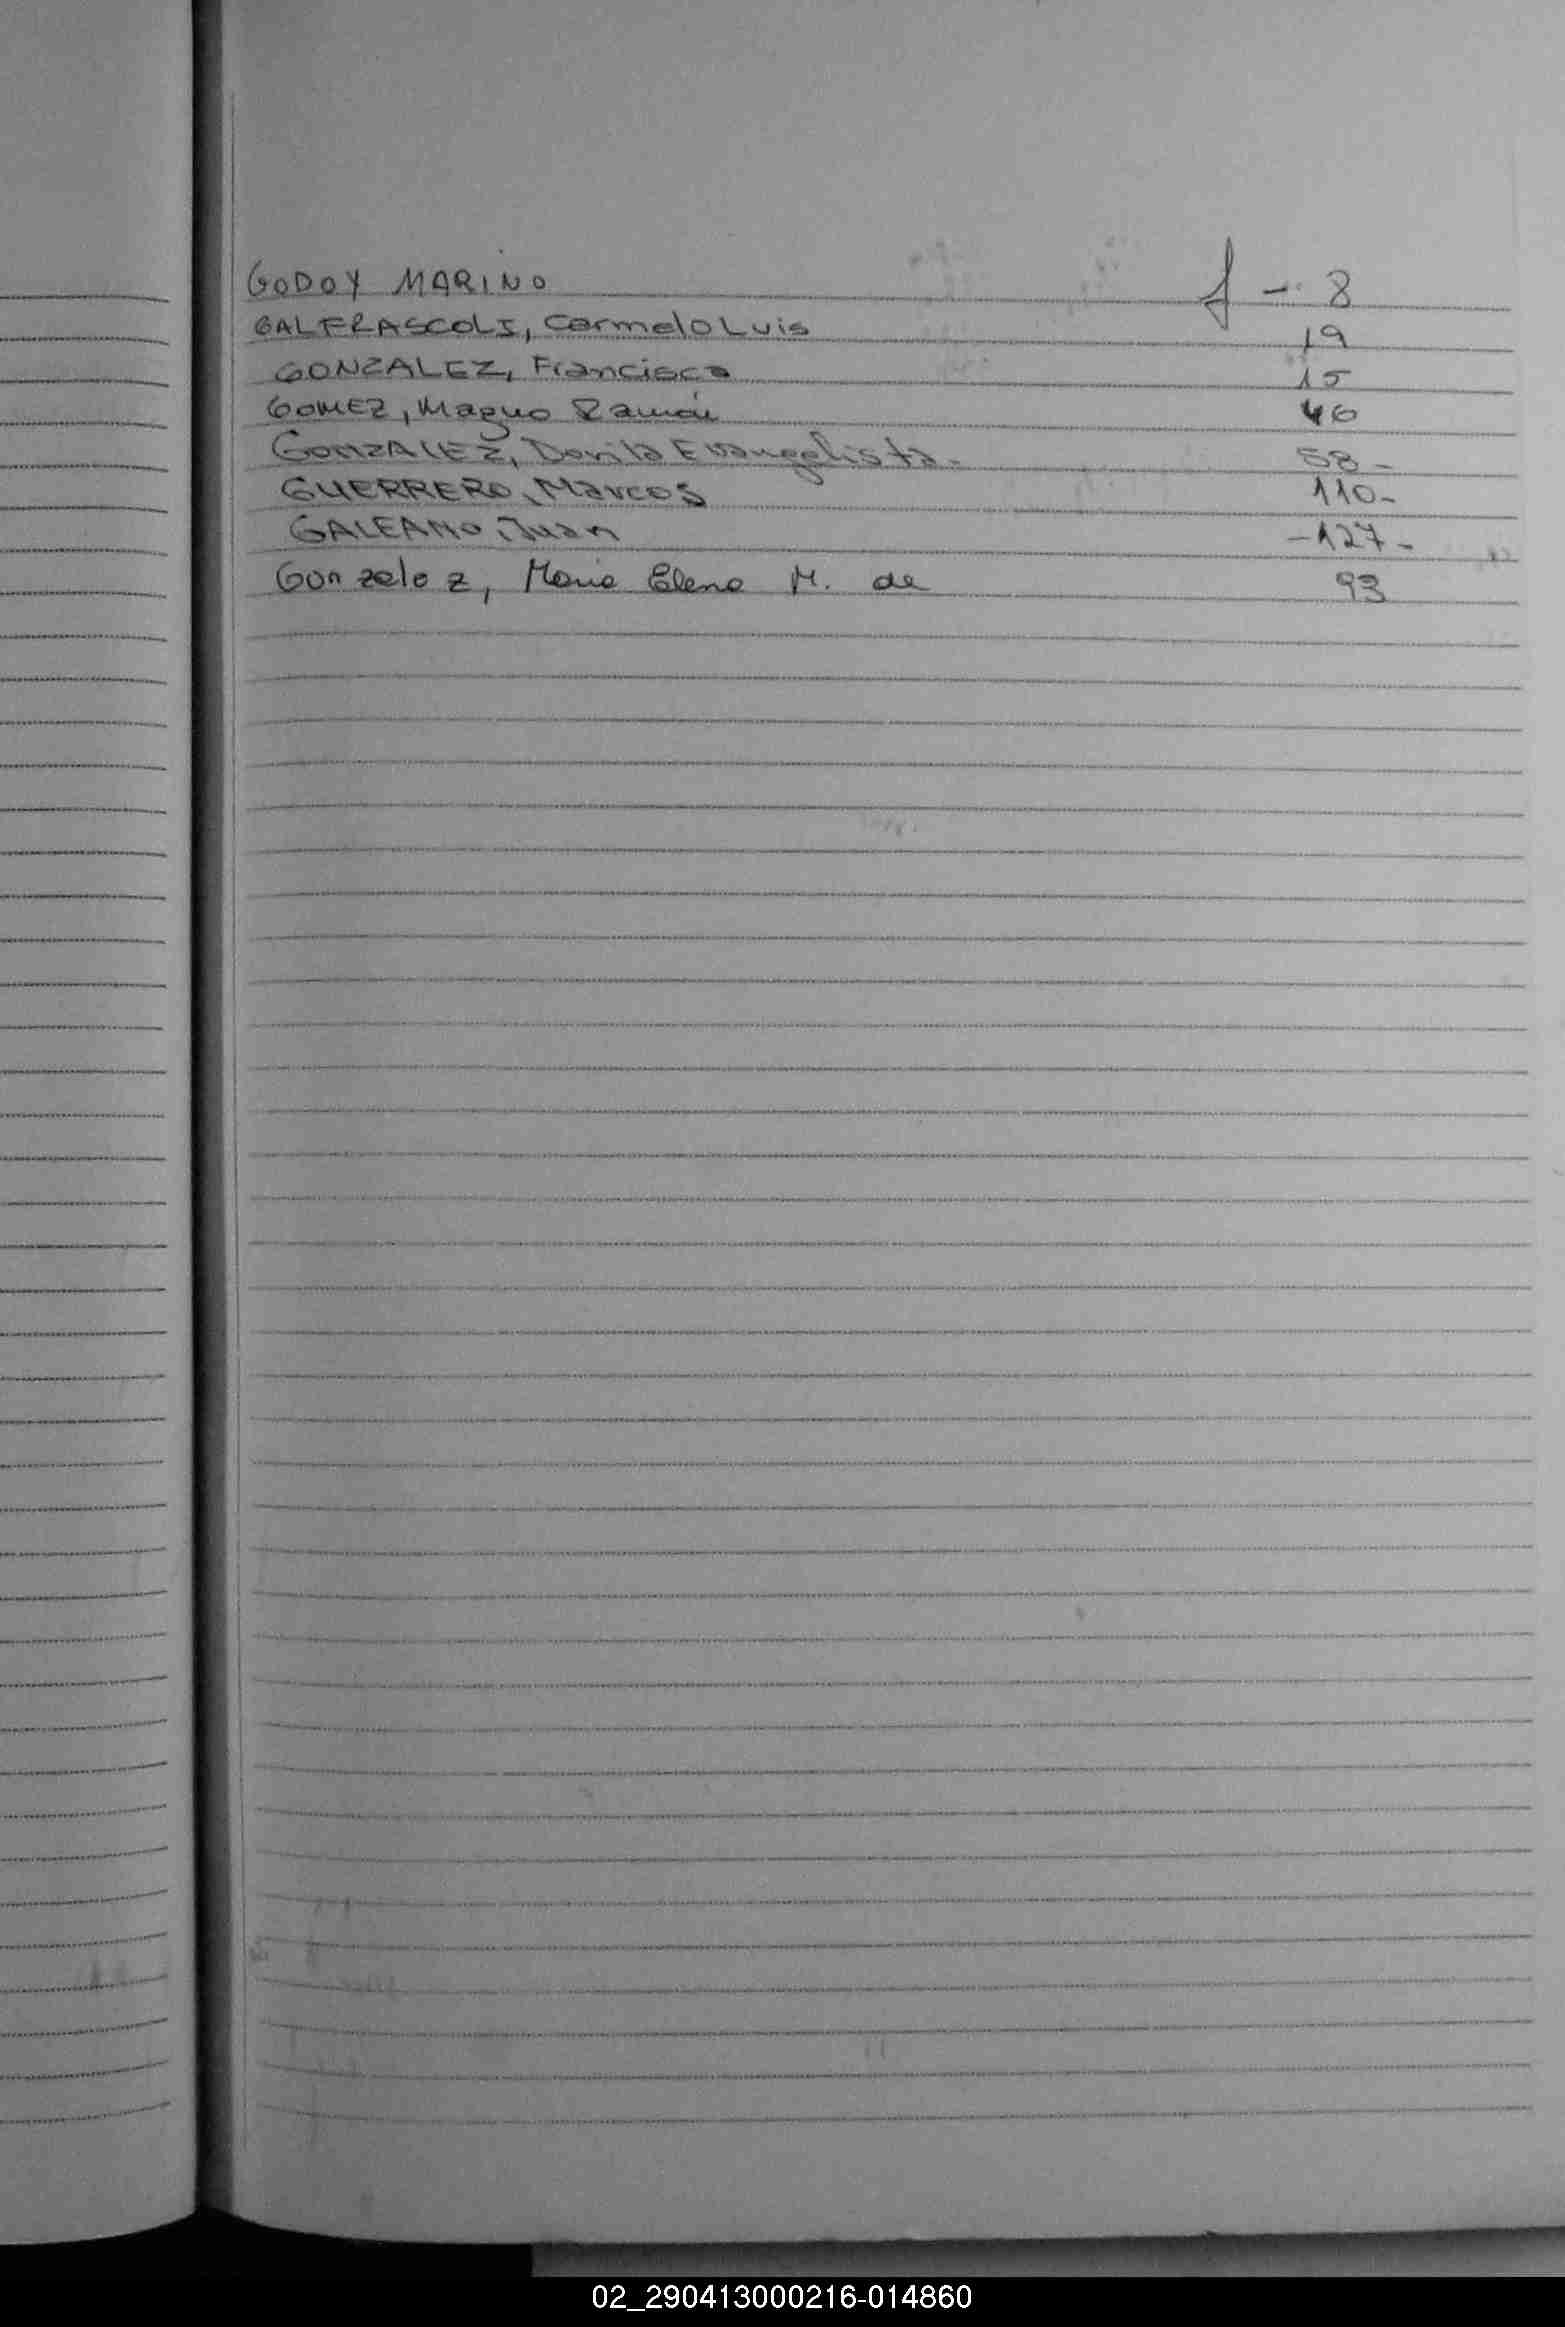 GODOY MARINO f - 8
GALFRASCOLI, Carmelo Luis 19
GONZALEZ, Francisco 15
GOMEZ, Magno Ramón 46
GONZALEZ, Evangelista. 58-
GUERRERO, Marcos 110-
GALEANO, Juan -127-
Gonzalez, Maria Elena M. de 93
02_290413000216-014860